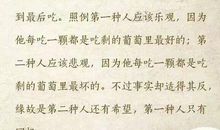 到最后吃。照例第一种人应该乐观，因为
他每吃一颗都是吃剩的葡萄里最好的；第
二种人应该悲观，因为他每吃一颗都是吃
剩的葡萄里最坏的。不过事实却适得其反，
缘故是第二种人还有希望，第一种人只有